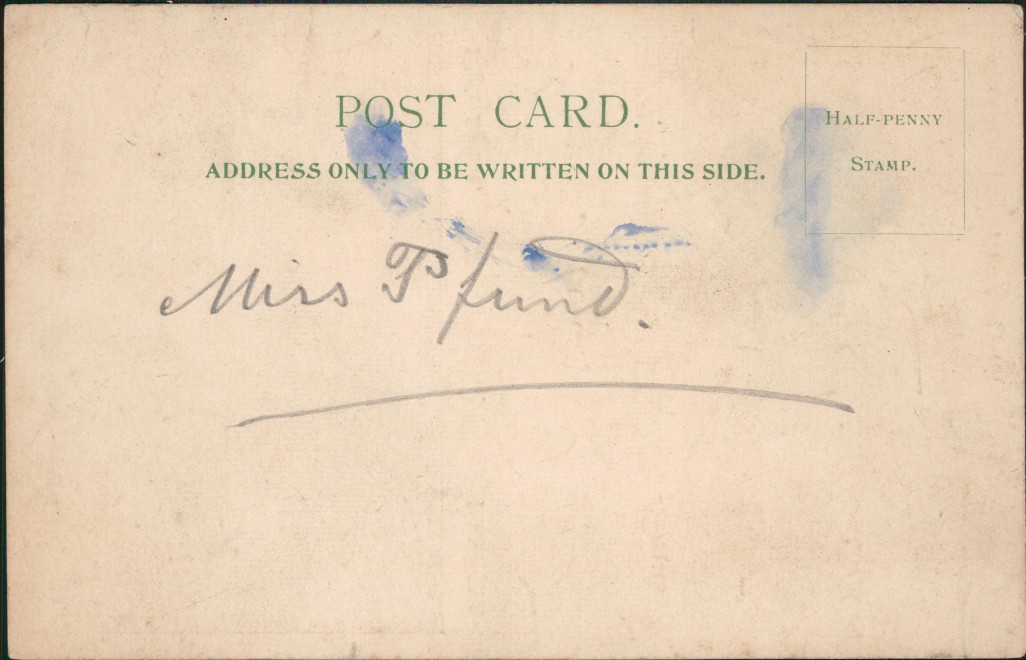 POST CARD.
ADDRESS ONLY TO BE WRITTEN ON THIS SIDE.
HALF-PENNY
STAMP.
Miss Pfund.